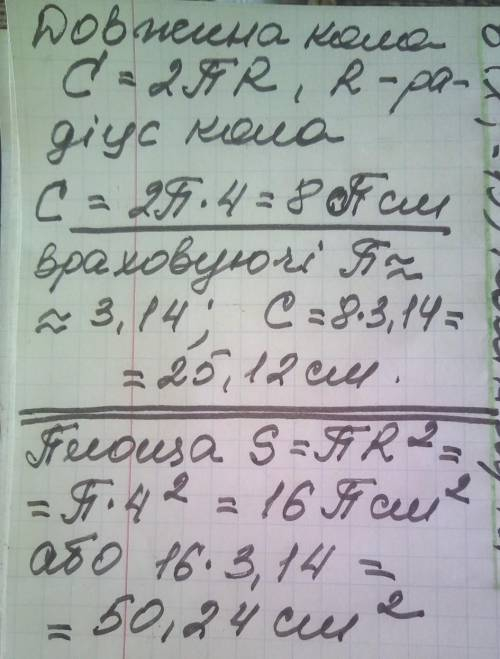 Довжина кола
C = 2ПR, R - ра-
діус кола
C = 2П·4 = 8 П см
враховуючі П ≈
≈ 3,14; C = 8·3,14 =
= 25,12 см.
Площа S = ПR² =
= П·4² = 16 П см²
або 16·3,14 =
= 50,24 см²